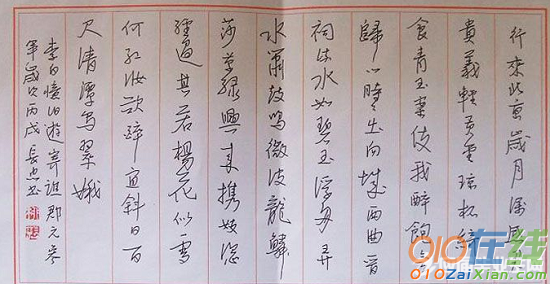 行來北京歲月深感君
貴義輕黃金瓊杯綺
食青玉案使我醉飽無
歸心時出向城西曲晋
祠流水如碧玉浮舟弄
水簫鼓鳴微波龍鱗
莎草綠興來携妓恣
經過其若楊花似雪
何紅妝欲醉宜斜日百
尺清潭寫翠娥
李白憶旧遊寄譙郡元參
軍歲次丙戌長忠书
010在线
010ZaiXian.Com